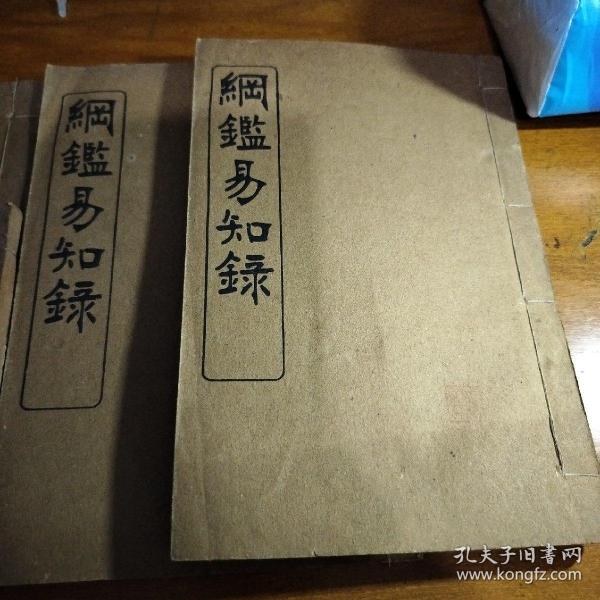 綱鑑易知錄
綱鑑易知錄
孔夫子旧书网
www.kongfz.com